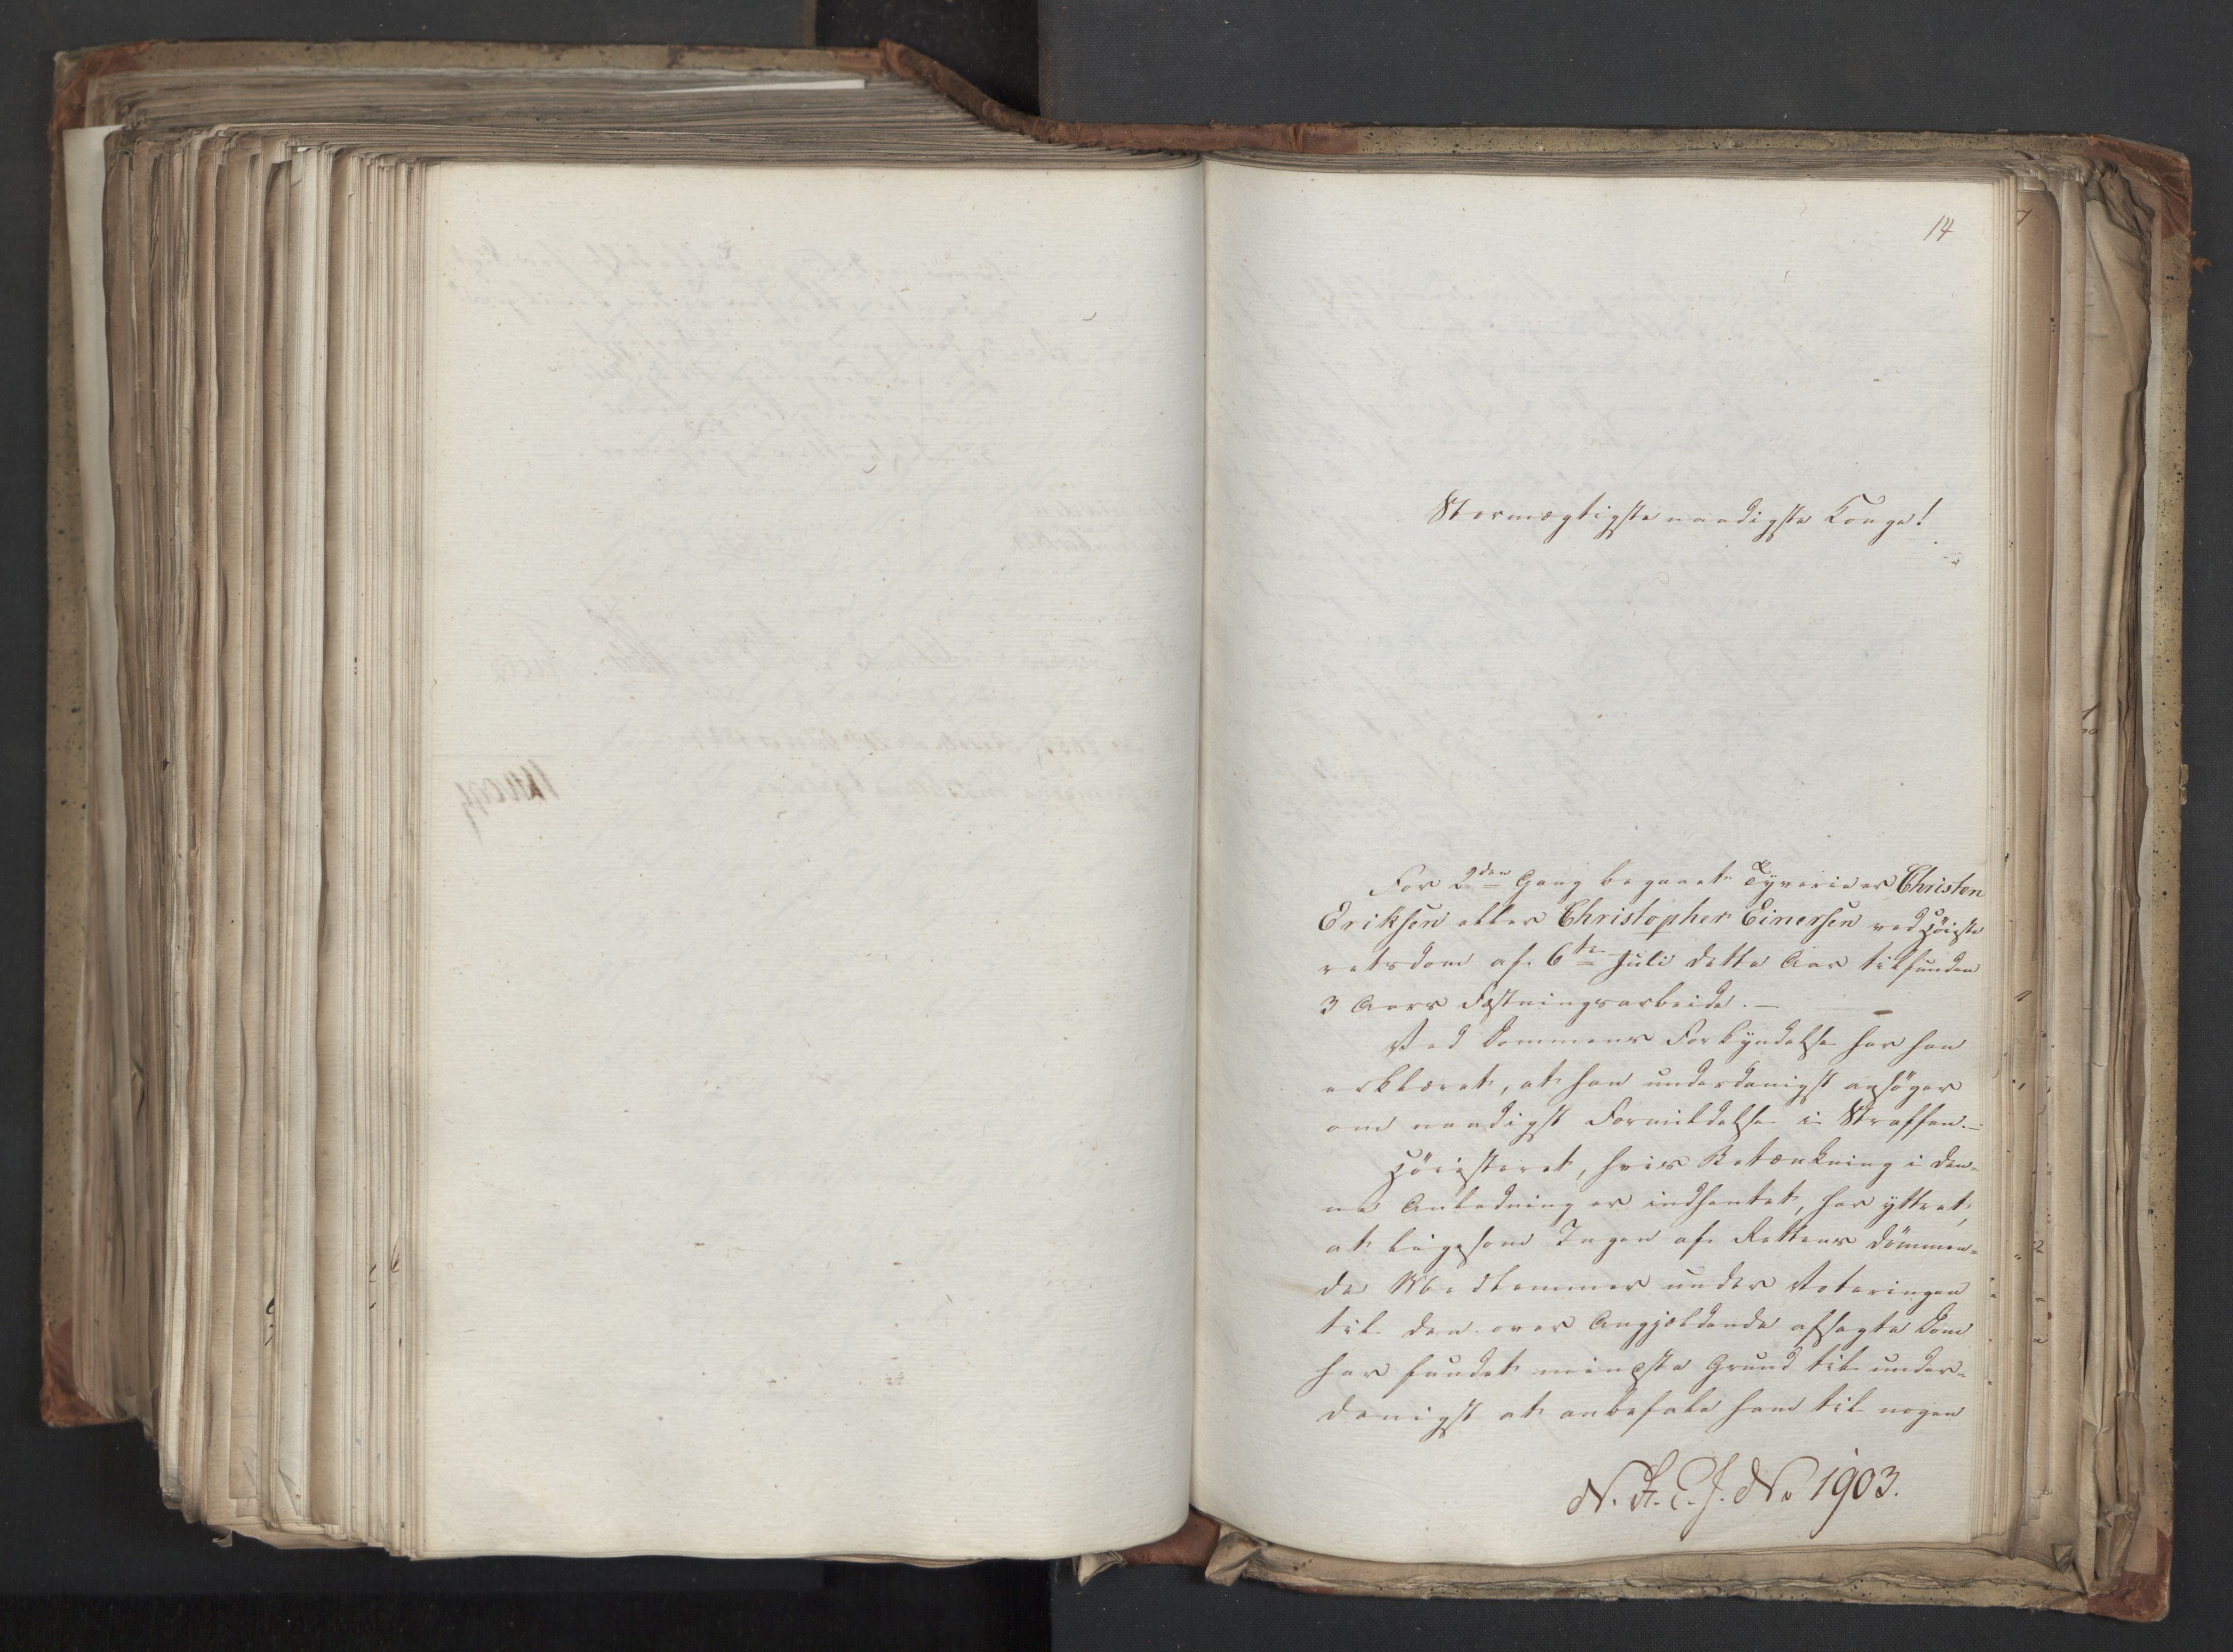 14
Stormægtigste naadigste Konge!
For 2den Gang begaaet Tyverie er Christen
Eriksen eller Christopher Einersen ved Höieste
retsdom af 6te Juli dette Aar tilfunden
3 Aars Fæstningsarbeide. –
Ved Dommens Forkyndelse har han
erklæret, at han underdanigst ansöger
om naadigst Formildelse i Straffen. –
Höiesteret, hvis Betænkning i den-
ne Anledning er indhentet, har yttret,
at ligesom Ingen af Rettens dömmen-
de Medlemmer under Voteringen
til den over Angjældende afsagte Dom
har fundet mindste Grund til under-
danigst at anbefale ham til nogen
No 1903.